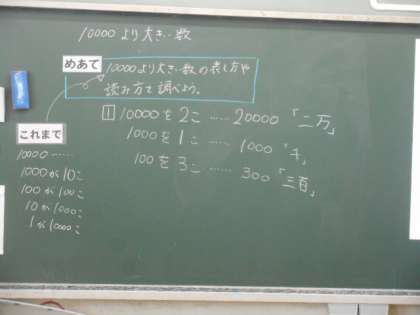 10000より大きい数
めあて
10000より大きい数の表し方や
読み方を調べよう。
1 10000を2こ……20000「二万」
1000を1こ……1000「千」
100を3こ……300「三百」
これまで
10000……
1000が10こ
100が100こ
10が1000こ
1が10000こ